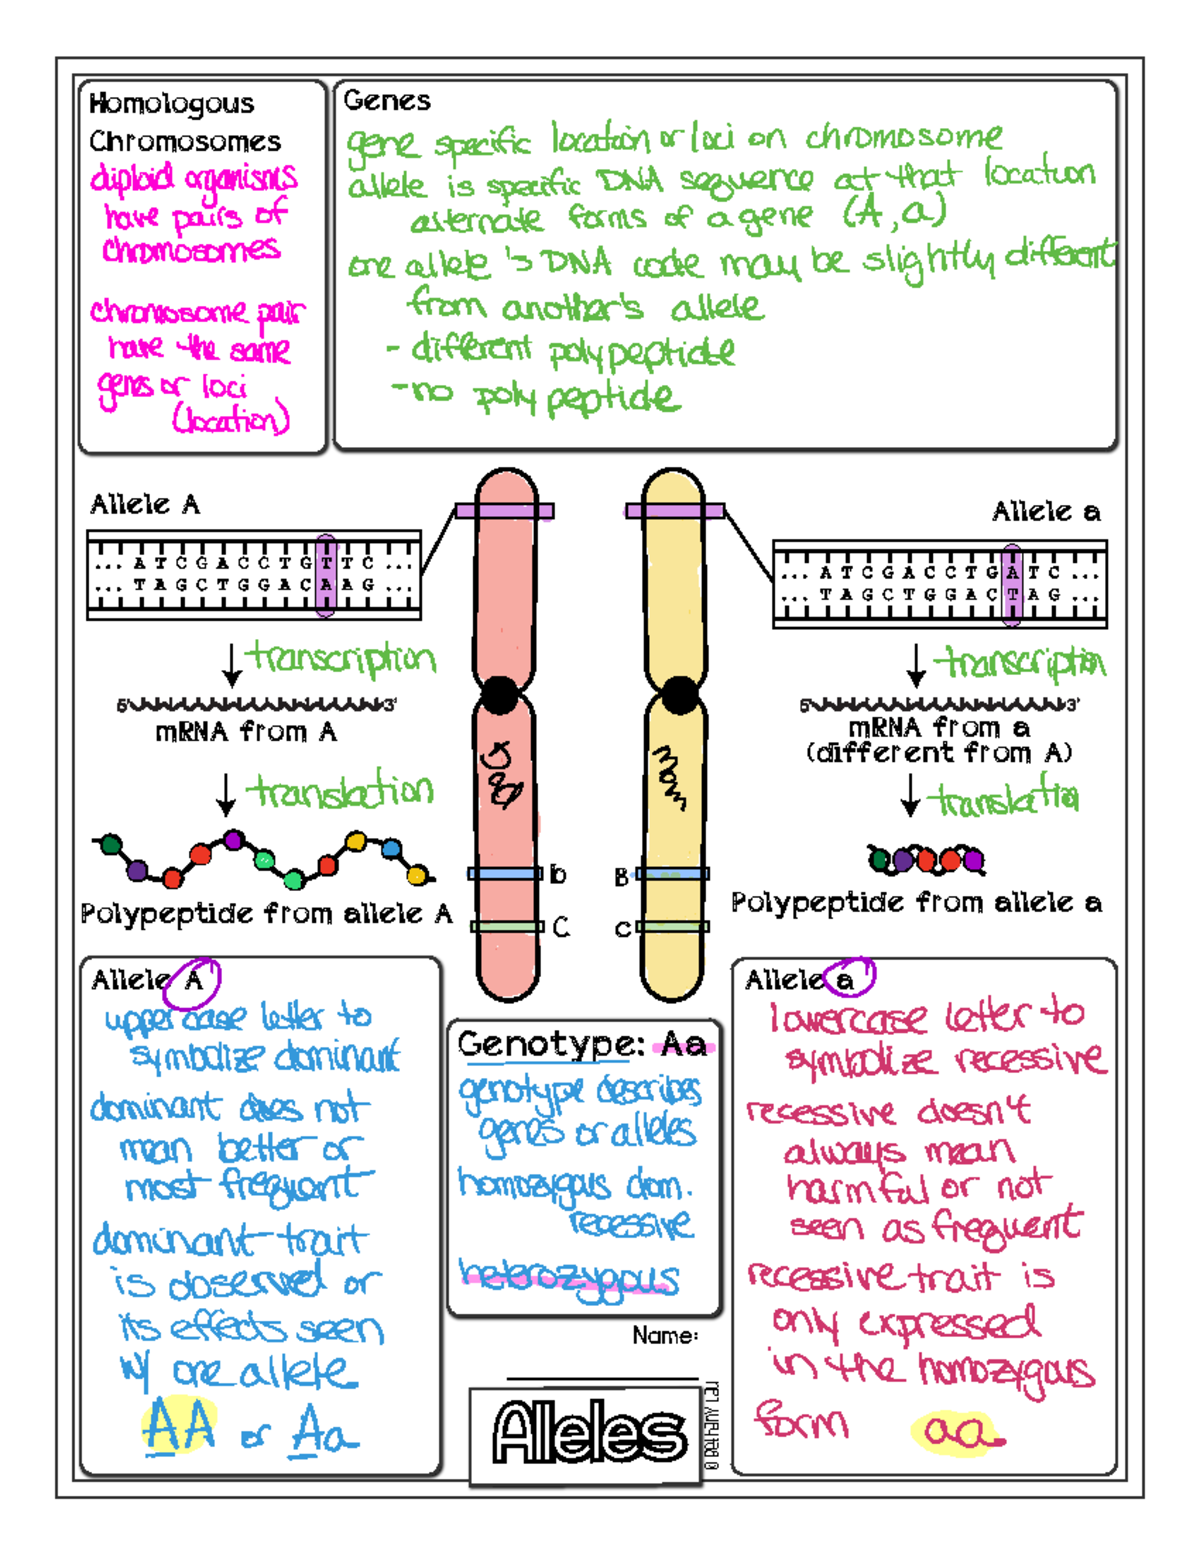 Homologous
Chromosomes
diploid organisms
have pairs of
chromosomes
chromosome pair
have the same
genes or loci
(location)
Genes
gene specific location or loci on chromosome
allele is specific DNA sequence at that location
alternate forms of a gene (A, a)
one allele's DNA code may be slightly different
from another's allele
- different polypeptide
- no polypeptide
Allele A
... A T C G A C C T G T T C ...
... T A G C T G G A C A A G ...
transcription
5' 3'
mRNA from A
translation
Polypeptide from allele A
b
C
B
c
Allele a
... A T C G A C C T G A T C ...
... T A G C T G G A C T A G ...
transcription
5' 3'
mRNA from a
(different from A)
translation
Polypeptide from allele a
Allele A
uppercase letter to
symbolize dominant
dominant does not
mean better or
most frequent
dominant trait
is observed or
its effects seen
w/ one allele
AA or Aa
Genotype: Aa
genotype describes
genes or alleles
homozygous dom.
recessive
heterozygous
Name:
Alleles
Allele a
lowercase letter to
symbolize recessive
recessive doesn't
always mean
harmful or not
seen as frequent
recessive trait is
only expressed
in the homozygous
form aa